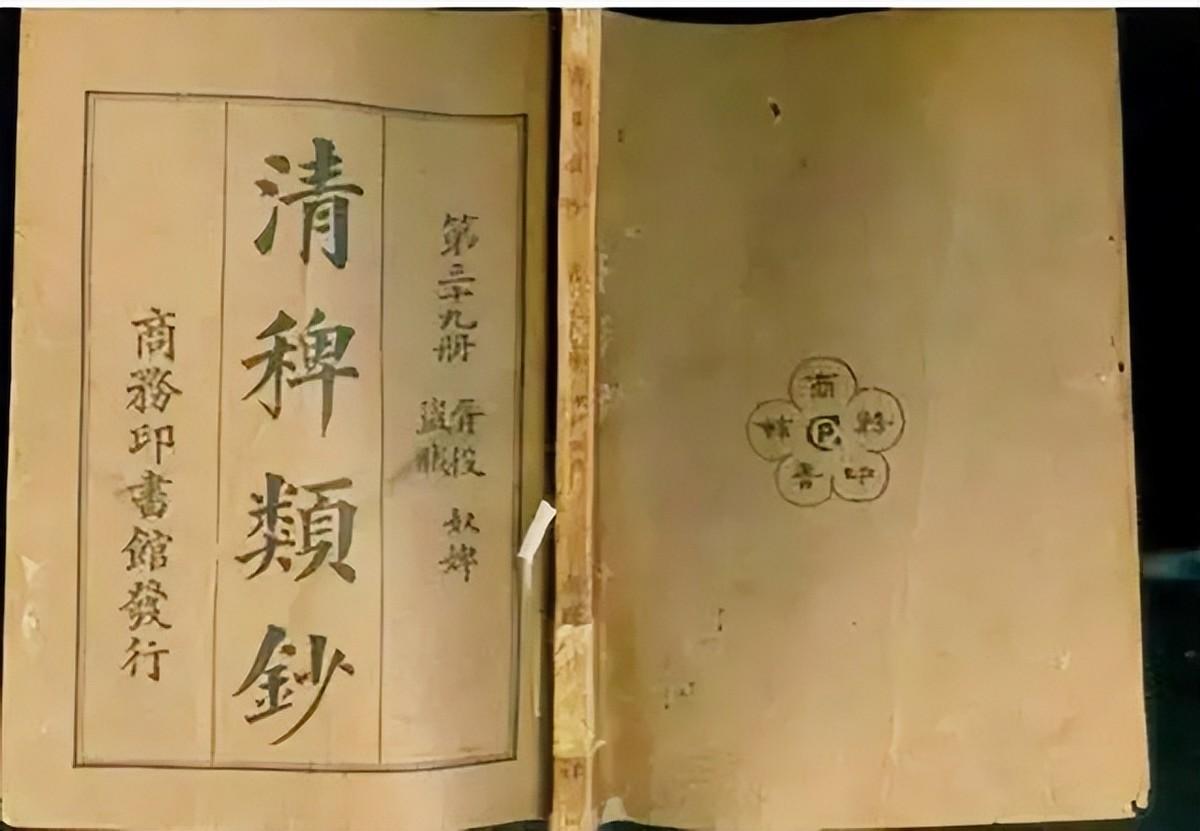 第三十九冊
胥役
盜賊
奴婢
清稗類鈔
商務印書館發行
商
務
印
書
館